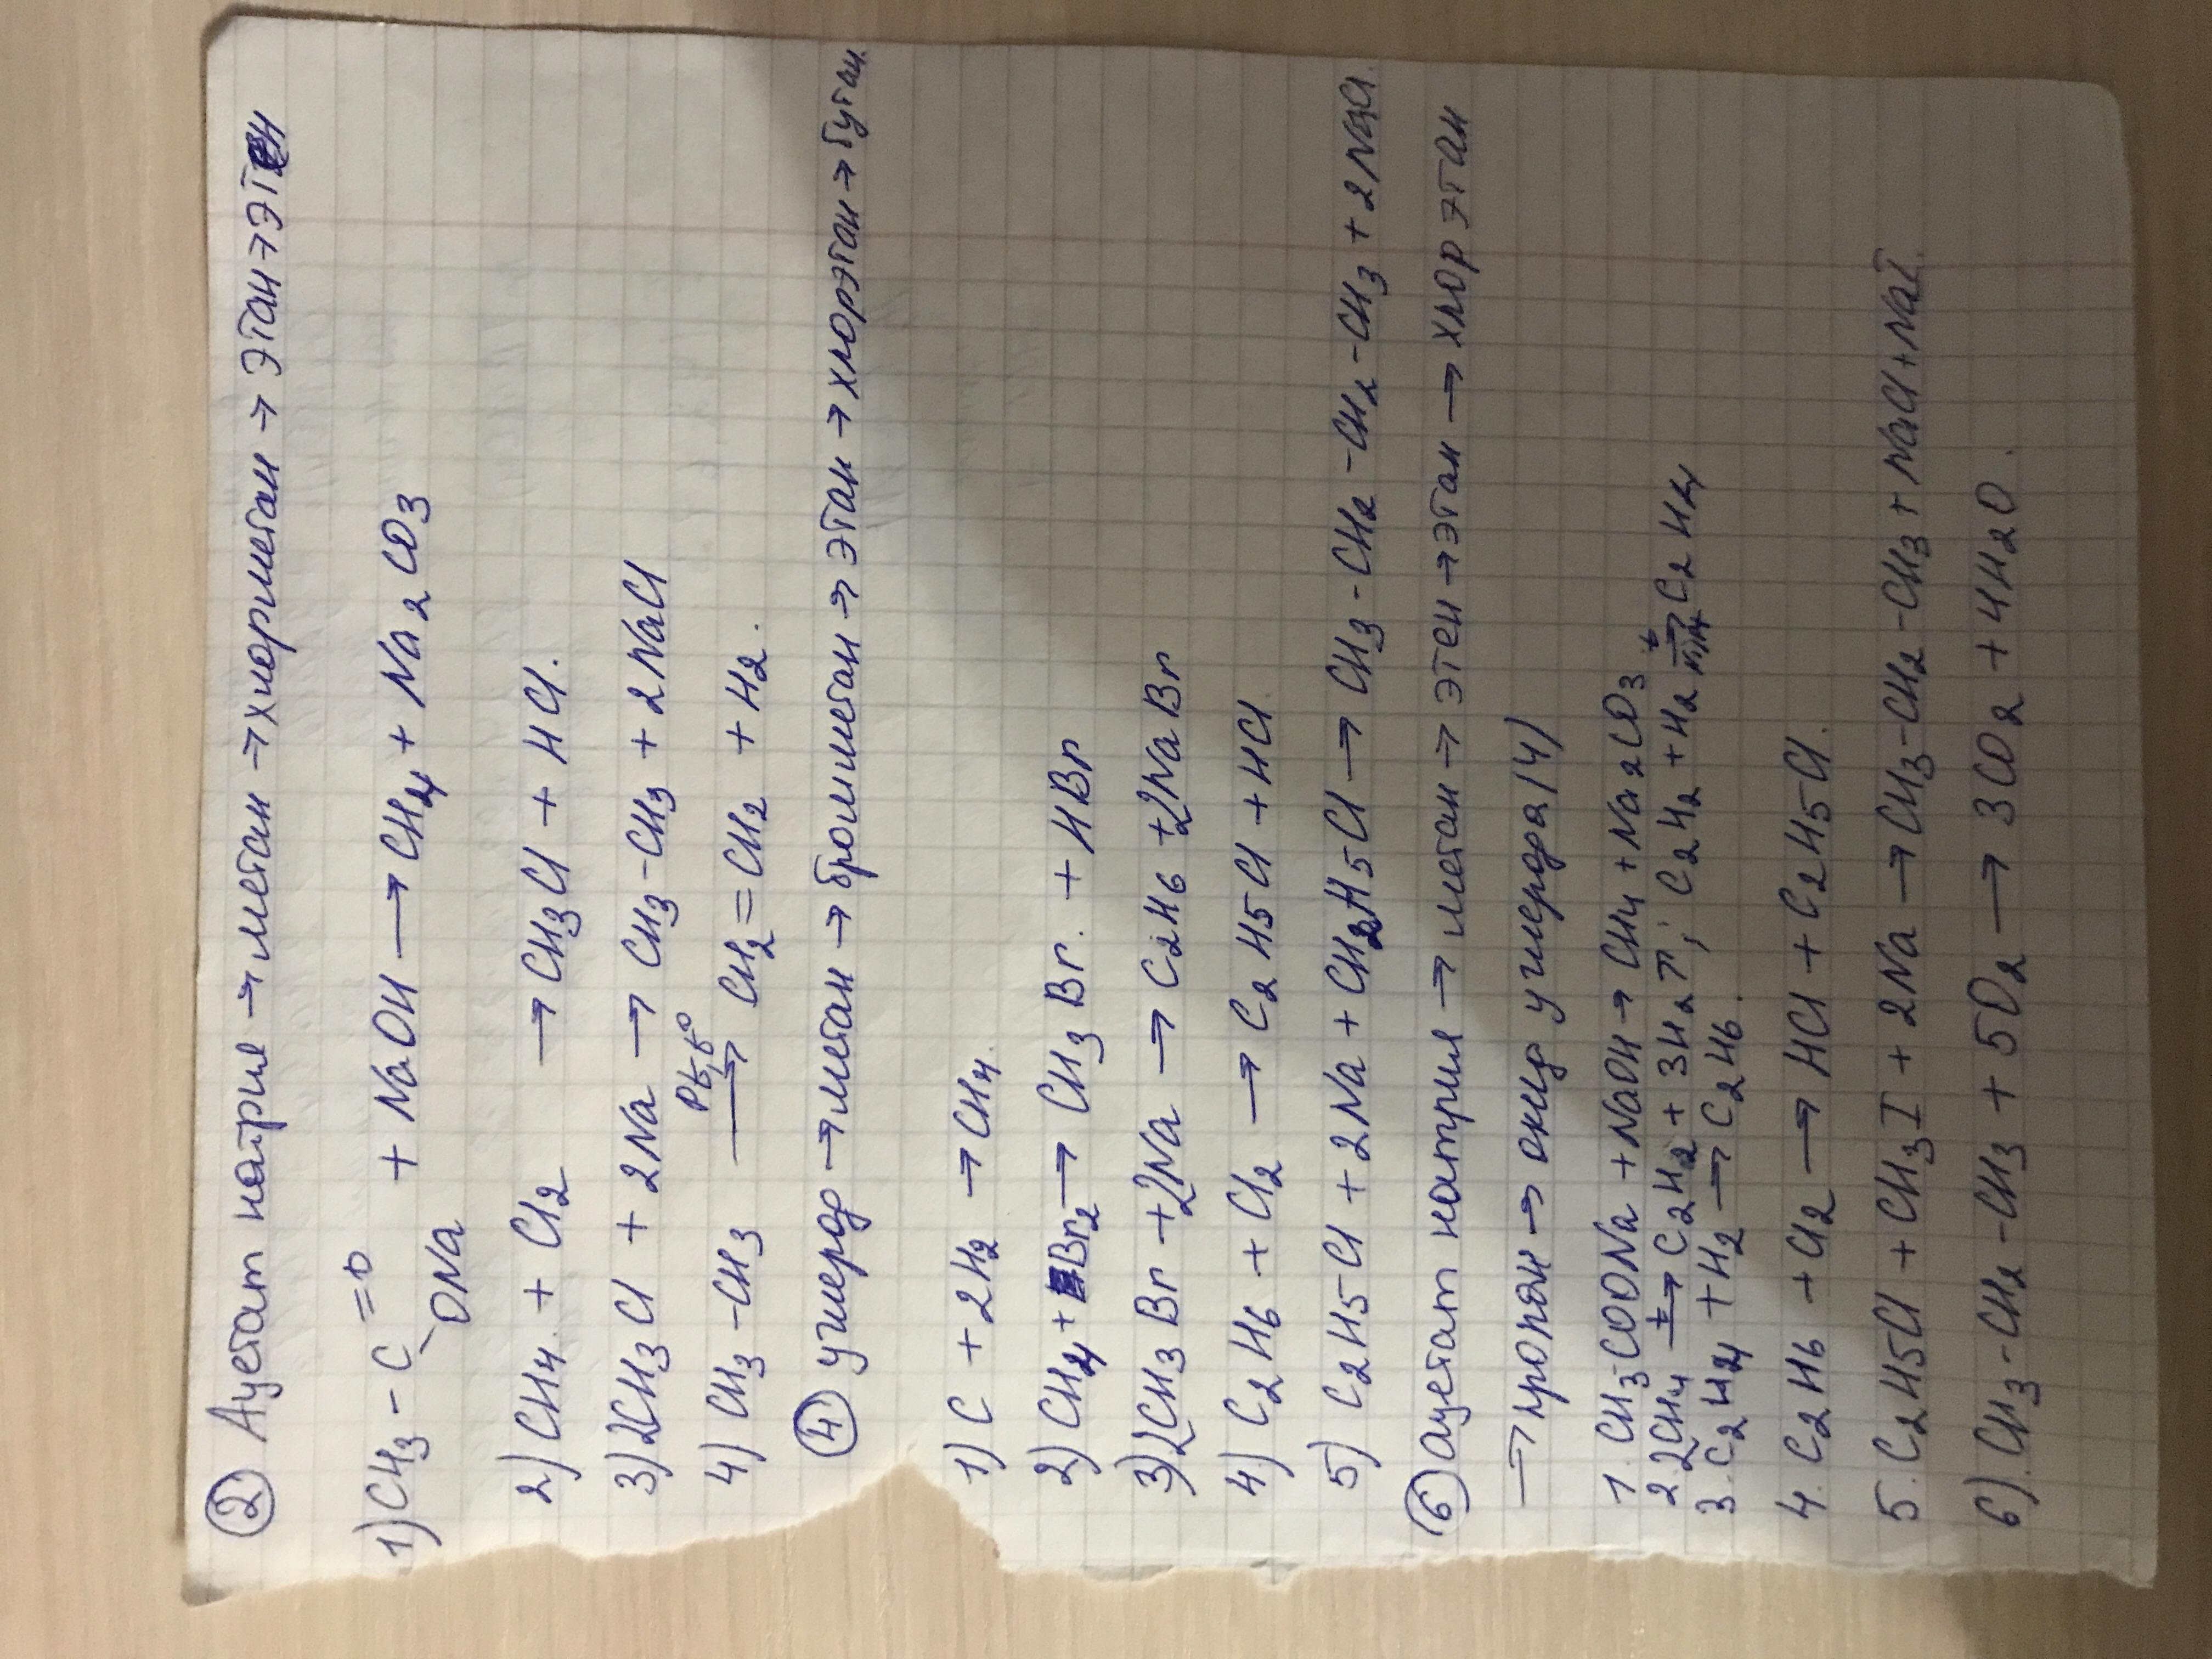 ② Ацетат натрия → метан → хлорметан → этан → этен
1) CH3 - C =O ONa + NaOH → CH4 + Na2CO3
2) CH4 + Cl2 → CH3Cl + HCl.
3) 2CH3Cl + 2Na → CH3-CH3 + 2NaCl
4) CH3-CH3 Pt, t° → CH2=CH2 + H2.
④ углерод → метан → бромметан → этан → хлорэтан → бутан.
1) C + 2H2 → CH4
2) CH4 + Br2 → CH3Br. + HBr
3) 2CH3Br + 2Na → C2H6 + 2NaBr
4) C2H6 + Cl2 → C2H5Cl + HCl
5) C2H5Cl + 2Na + CH2H5Cl → CH3-CH2-CH2-CH3 + 2NaCl.
⑥ ацетат натрия → метан → этен → этан → хлорэтан
→ пропан → оксид углерода (4)
1. CH3-COONa + NaOH → CH4 + Na2CO3
2. 2CH4 t→ C2H2 + 3H2↑; C2H2 + H2 → C2H4
3. C2H4 + H2 → C2H6.
4. C2H6 + Cl2 → HCl + C2H5Cl.
5. C2H5Cl + CH3I + 2Na → CH3-CH2-CH3 + NaCl + NaI.
6). CH3-CH2-CH3 + 5O2 → 3CO2 + 4H2O.